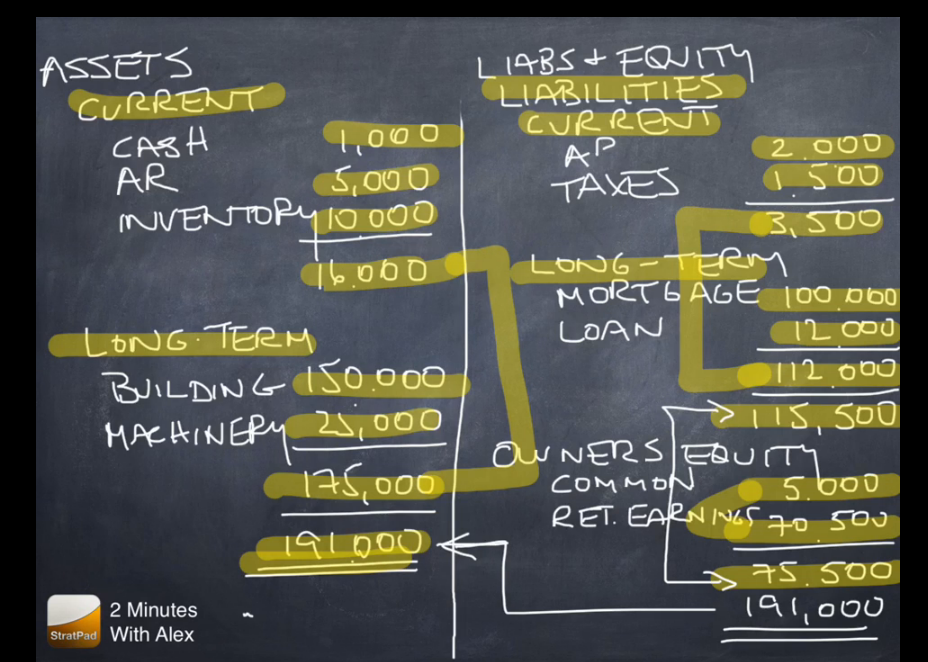 ASSETS
CURRENT
CASH 1,000
AR 5,000
INVENTORY 10.000
16.000
LONG-TERM
BUILDING 150.000
MACHINERY 25,000
175,000
191.000
LIABS + EQUITY
LIABILITIES
CURRENT
AP 2.000
TAXES 1.500
3,500
LONG-TERM
MORTGAGE 100.000
LOAN 12.000
112.000
115,500
OWNERS EQUITY
COMMON 5.000
RET. EARNINGS 70.500
75.500
191,000
StratPad
2 Minutes
With Alex